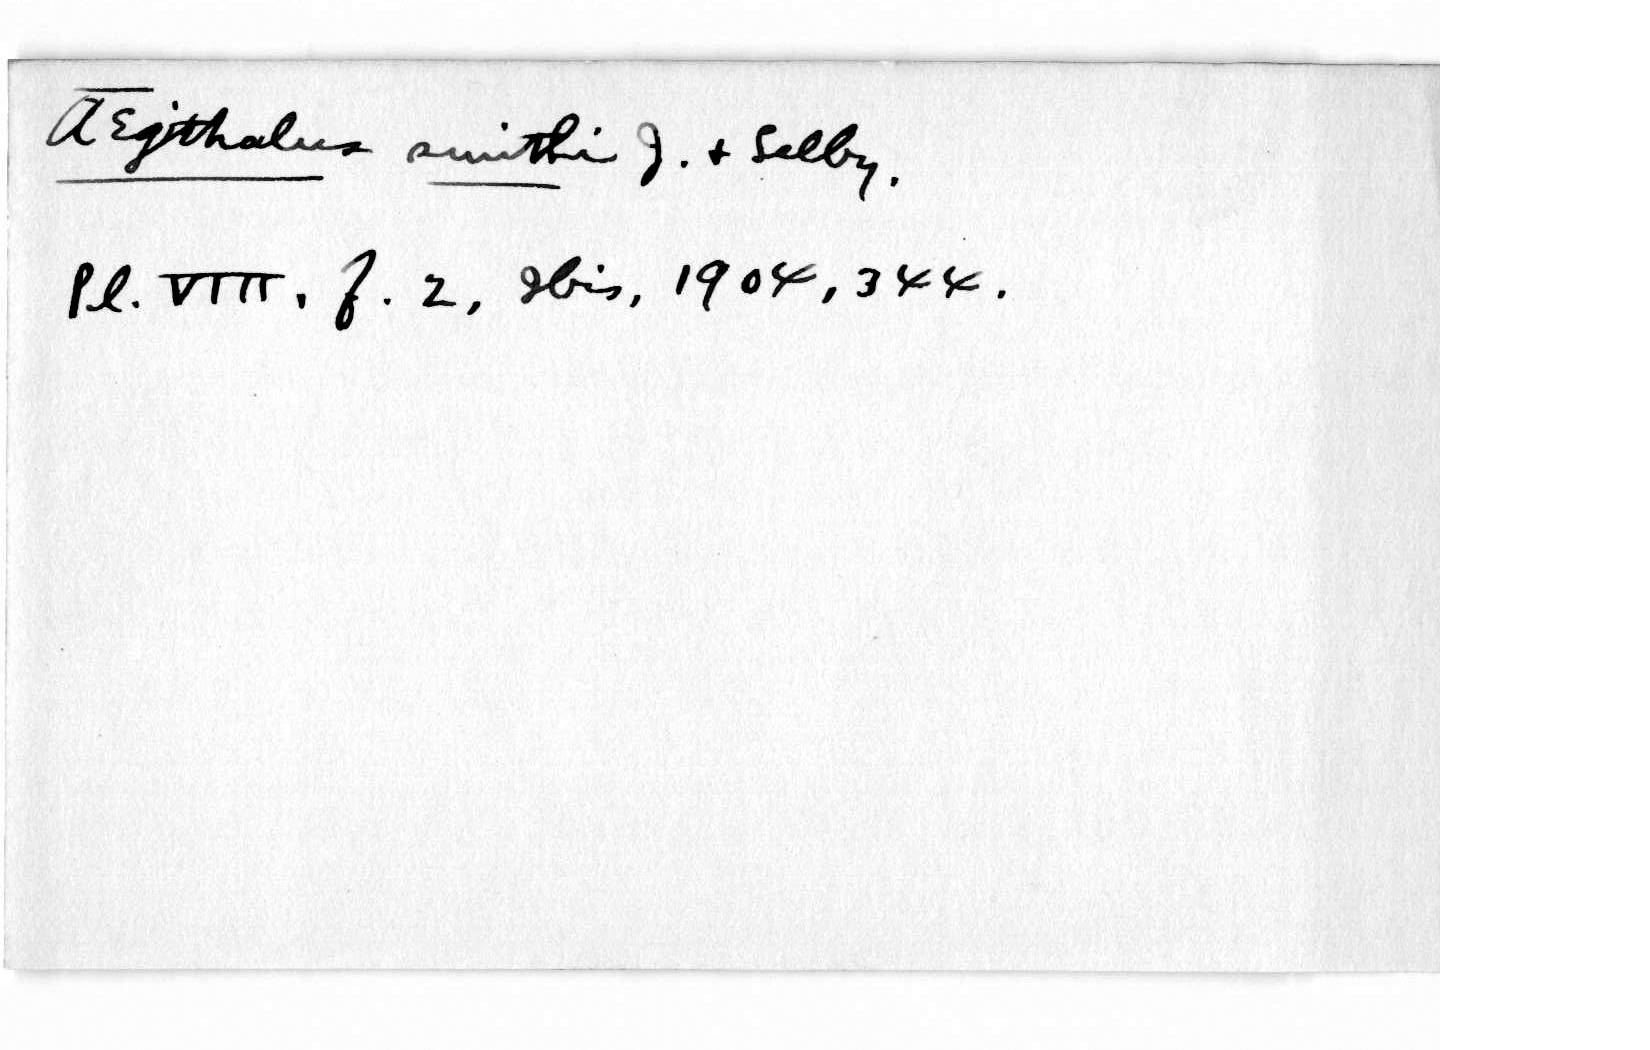 AEgithalus smithi J. + Selby.
Pl. VIII, f. 2, Ibis, 1904, 344.